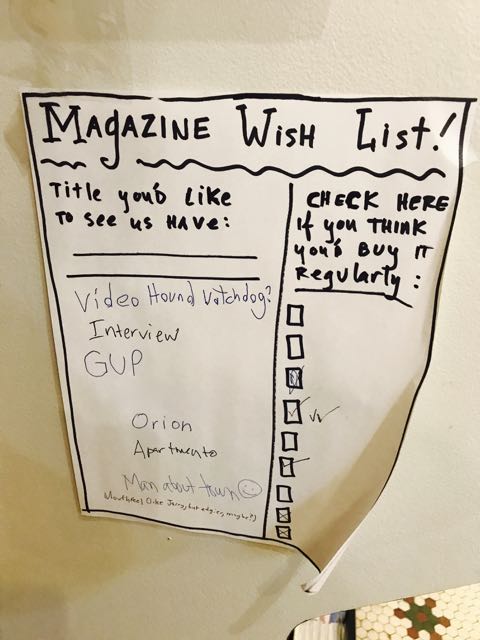 Magazine Wish List!
Title you'd like
to see us have:
CHECK HERE
if you THINK
you'd BUY IT
Regularly:
Video Hound Watchdog?
Interview
GUP
Orion
Apartmento
Man about town
Mouthfeel (like Jarry, but edgier, maybe?)